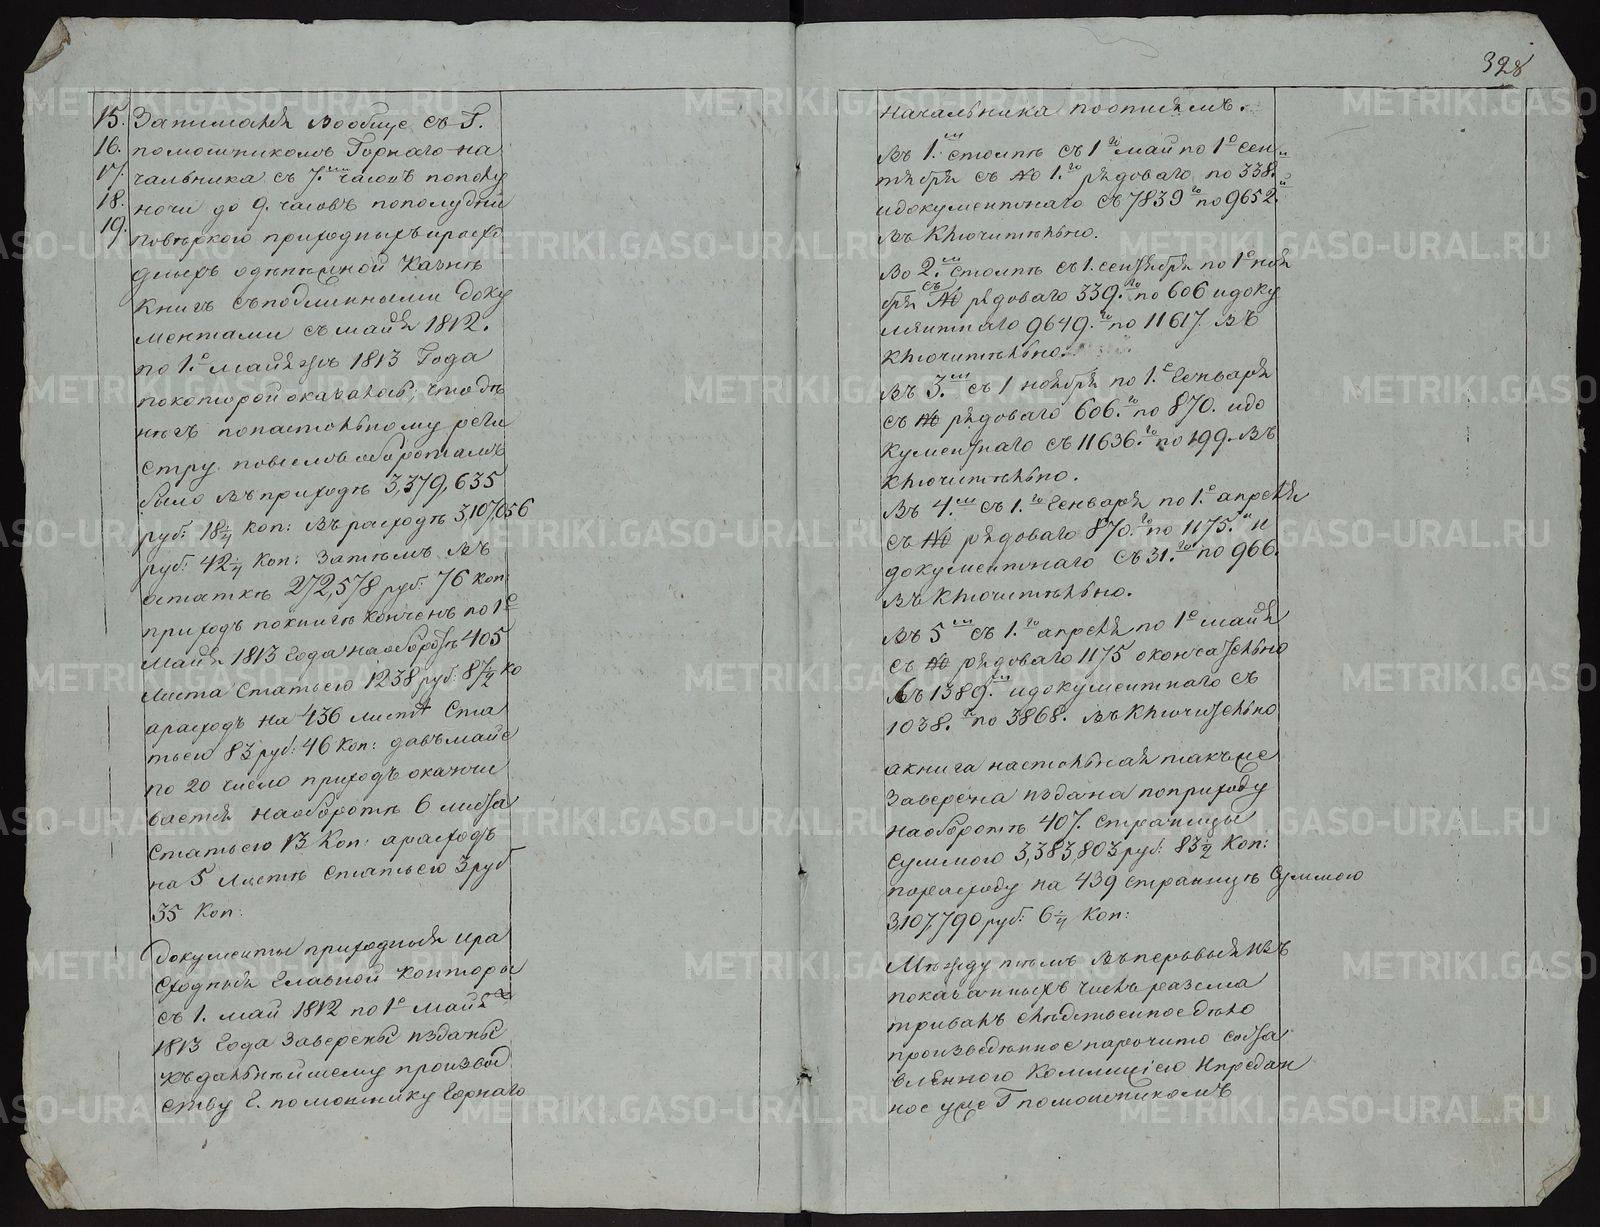 328
15. Занимался вообще съ Г.
16. помощникомъ Горнаго на
17. чальника съ 7. часовъ пополу
18. ночи до 9. часовъ пополудни
19. повѣркою приходныхъ и расхо
дныхъ одѣнѣжной казнѣ
книгъ съ подлинными доку
ментами съ майя 1812.
по 1.е майя жъ 1813 Года
по которой оказалось; что дѣ
нѣгъ по настольному реги
стру по всемъ оборотамъ
было въ приходѣ 3,379,635
руб: 18 1/4 коп: въ расходѣ 3,107,056
руб: 42 1/4 коп: Затѣмъ въ
остаткѣ 272,578 руб: 76 коп:
приходъ по книгѣ конченъ по 1е
Майя 1813 года на оборотѣ 405
листа Статьею 1238 руб: 87 1/2 ко
а расходъ на 436 листѣ Ста
тьею 83 руб: 46 коп: да въ майе
по 20 число приходъ оканчи
вается на оборотѣ 6 листа
Статьею 13 коп: а расходъ
на 5 Листѣ Статьею 3 руб
35 коп:
Документы приходныя и ра
сходныя Главной конторы
съ 1. май 1812 по 1е майя
1813 Года заверены и зданы
къ дальнѣйшему производ
ству Г. помощнику Горнаго
Начальника по описямъ.
Въ 1.й стоитъ съ 1го май по 1е сен
тября съ № 1.го рядоваго по 338.
и документнаго съ 7839го по 9652.
Въ ключительно.
Во 2.й Стоитъ съ 1. сентября по 1е ноя
бря съ № рядоваго 339.го по 606 и доку
ментнаго 9649.го по 11617. въ
ключительно.
Въ 3.й съ 1 ноября по 1.е Генваря
съ № рядоваго 606.го по 870. и до
кументнаго съ 11636.го по 199. въ
ключительно.
Въ 4.й съ 1.го Генваря по 1.е апреля
съ № рядоваго 870.го по 1175. и
документнаго съ 31.го по 966.
въ ключительно.
Въ 5й съ 1.го апреля по 1е майя
съ № рядоваго 1175 окончательно
въ 1389. и документнаго съ
1038. по 3868. въ ключительно
а книга настольная также
заверена и здана по приходу
на оборотѣ 407. страницы
суммою 3,383,803 руб: 83 1/2 коп:
по расходу на 439 страницѣ суммою
3,107,790 руб: 6 1/4 коп:
Между тѣмъ въ первыя изъ
показанныхъ числъ разсма
тривалъ слѣдственное дѣло
произведѣнное нарочито соста
вленною Коммисіею и предан
ное уже Г помошникомъ